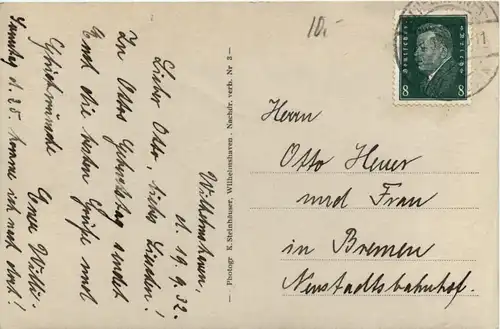 Wilhelmshaven,
d. 19.9.32.
Lieber Otto, liebes
Zu Ottos Geburtstag sendet
Euch die besten Grüße und
Glückwünsche Euer Willi.
Samstag d. 25. komme ich nach dort!
— Photogr. K. Steinhäuser, Wilhelmshaven - Nachdr. verb. Nr 3 —
10.-
Deutsches Reich
8 8
Herrn
Otto Heuer
und Frau
in Bremen
Neustadtsbahnhof.